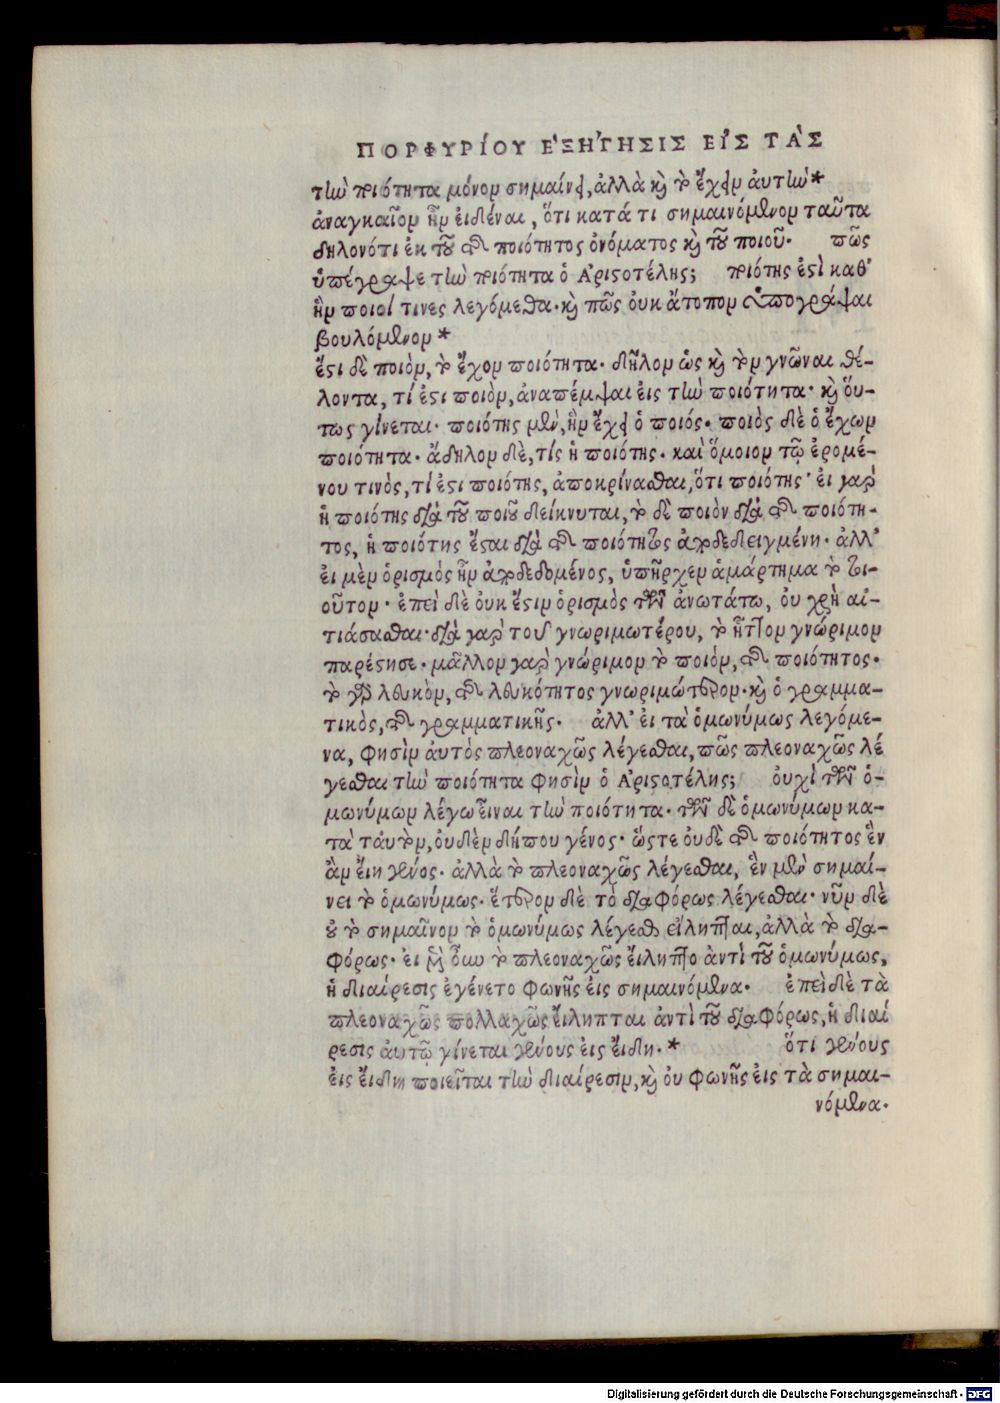 ΠΟΡΦΥΡΊΟΥ ἘΞΉΓΗΣΙΣ ΕἸΣ ΤᾺΣ
τὴν ποιότητα μόνον σημαίνει, ἀλλὰ καὶ τὸ ἔχειν ἀυτὴν*
ἀναγκαῖον ἦν ἐιδέναι, ὅτι κατά τι σημαινόμενον ταῦτα
δηλονότι ἐκ τοῦ τῆς ποιότητος ὀνόματος καὶ τοῦ ποιοῦ. πῶς
ὑπέγραψε τὴν ποιότητα ὁ Ἀριστοτέλης; ποιότης ἐστὶ καθ'
ἣν ποιοί τινες λεγόμεθα. καὶ πῶς ὀυκ ἄτοπον ὑπογράψαι
βουλόμενον *
ἔστι δὲ ποιὸν, τὸ ἔχον ποιότητα. δῆλον ὡς καὶ τὸν γνῶναι θέ-
λοντα, τί ἐστι ποιὸν, ἀναπέμψαι ἐις τὴν ποιότητα. καὶ ὅυ-
τως γίνεται. ποιότης μὲν, ἣν ἔχει ὁ ποιός. ποιὸς δὲ ὁ ἔχων
ποιότητα. ἄδηλον δὲ, τίς ἡ ποιότης. καὶ ὅμοιον τῷ ἐρομέ-
νου τινὸς, τί ἐστι ποιότης, ἀποκρίνασθαι, ὅτι ποιότης. ἐι γὰρ
ἡ ποιότης διὰ τοῦ ποιοῦ δείκνυται, τὸ δὲ ποιὸν διὰ τῆς ποιότη-
τος, ἡ ποιότης ἔσται διὰ τῆς ποιότητος ἀποδεδειγμένη. ἀλλ'
ἐι μὲν ὁρισμὸς ἦν ἀποδεδομένος, ὑπῆρχεν ἁμάρτημα τὸ τοι-
οῦτον. ἐπεὶ δὲ ὀυκ ἔστιν ὁρισμὸς τῶν ἀνωτάτω, ὀυ χρὴ αἰ-
τιάσασθαι. διὰ γὰρ τοῦ γνωριμωτέρου, τὸ ἧττον γνώριμον
παρέστησε. μᾶλλον γὰρ γνώριμον τὸ ποιὸν, τῆς ποιότητος.
τὸ γὰρ λευκὸν, τῆς λευκότητος γνωριμώτερον. καὶ ὁ γραμμα-
τικὸς, τῆς γραμματικῆς. ἀλλ' ἐι τὰ ὁμωνύμως λεγόμε-
να, φησὶν ἀυτὸς πλεοναχῶς λέγεσθαι, πῶς πλεοναχῶς λέ
γεσθαι τὴν ποιότητα φησὶν ὁ Ἀριστοτέλης; ὀυχὶ τῶν ὁ-
μωνύμων λέγω εἶναι τὴν ποιότητα. τῶν δὲ ὁμωνύμων κα-
τὰ τἀυτὸν, ὀυδὲν δήπου γένος. ὥστε ὀυδὲ τῆς ποιότητος ἓν
ἂν ἔιη γένος. ἀλλὰ τὸ πλεοναχῶς λέγεσθαι, ἓν μὲν σημαί-
νει τὸ ὁμωνύμως. ἕτερον δὲ τὸ διαφόρως λέγεσθαι. νῦν δὲ
ὀυ τὸ σημαῖνον τὸ ὁμωνύμως λέγεσθαι εἴληπται, ἀλλὰ τὸ δια-
φόρως. ἐι μὲν ὀῦν τὸ πλεοναχῶς ἔιληπτο ἀντὶ τοῦ ὁμωνύμως,
ἡ διαίρεσις ἐγένετο φωνῆς ἐις σημαινόμενα. ἐπεὶ δὲ τὰ
πλεοναχῶς πολλαχῶς ἔιληπται ἀντὶ τοῦ διαφόρως, ἡ διαί
ρεσις ἀυτῷ γίνεται γένους ἐις ἔιδη. * ὅτι γένους
ἐις ἔιδη ποιεῖται τὴν διαίρεσιν, καὶ ὀυ φωνῆς ἐις τὰ σημαι-
νόμενα.
Digitalisierung gefördert durch die Deutsche Forschungsgemeinschaft - DFG